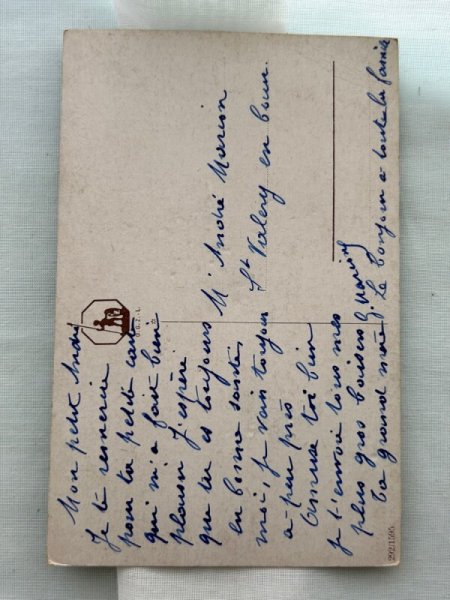 Mon petit André
Je te remercie
pour ta petite carte
qui m'a fait bien
plaisir J'espère
que tu es toujours
en bonne santé,
moi, je vais toujours
a-peu près
Amuse toi bien
Je t'envoie tous mes
plus gros baisers
Ta grand mère
G. Marion
Le bonjour a toute la famille
Mr André Marion
St Valery en Caux
292/1506